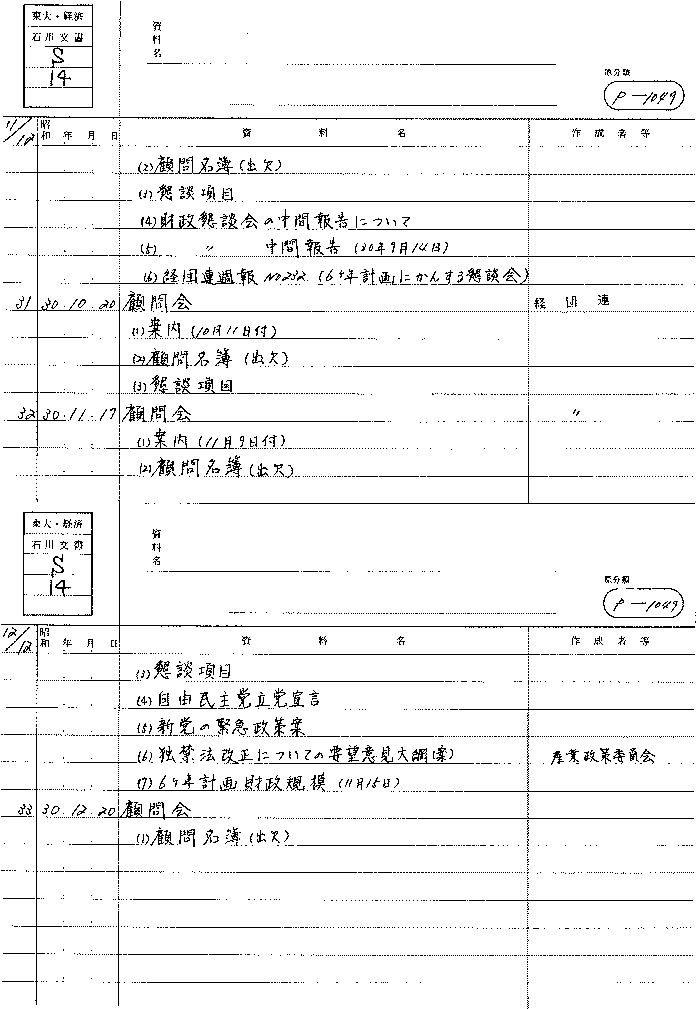 東大・経済
石川文書
S
14
資料名
原分類
P-1049
11/12
昭和 年 月 日 資 料 名 作 成 者 等
(2)顧問名簿(出欠)
(3)懇談項目
(4)財政懇談会の中間報告について
(5) 〃 中間報告(30年9月14日)
(6)経団連週報 No232 (6ヶ年計画にかんする懇談会)
31 30・10・20 顧問会 経団連
(1)案内(10月11日付)
(2)顧問名簿(出欠)
(3)懇談項目
32 30・11・17 顧問会 〃
(1)案内(11月9日付)
(2)顧問名簿(出欠)
東大・経済
石川文書
S
14
資料名
原分類
P-1049
12/12
昭和 年 月 日 資 料 名 作 成 者 等
(3)懇談項目
(4)自由民主党立党宣言
(5)新党の緊急政策案
(6)独禁法改正についての要望意見大綱(案) 産業政策委員会
(7)6ヶ年計画財政規模(11月15日)
33 30・12・20 顧問会
(1)顧問名簿(出欠)